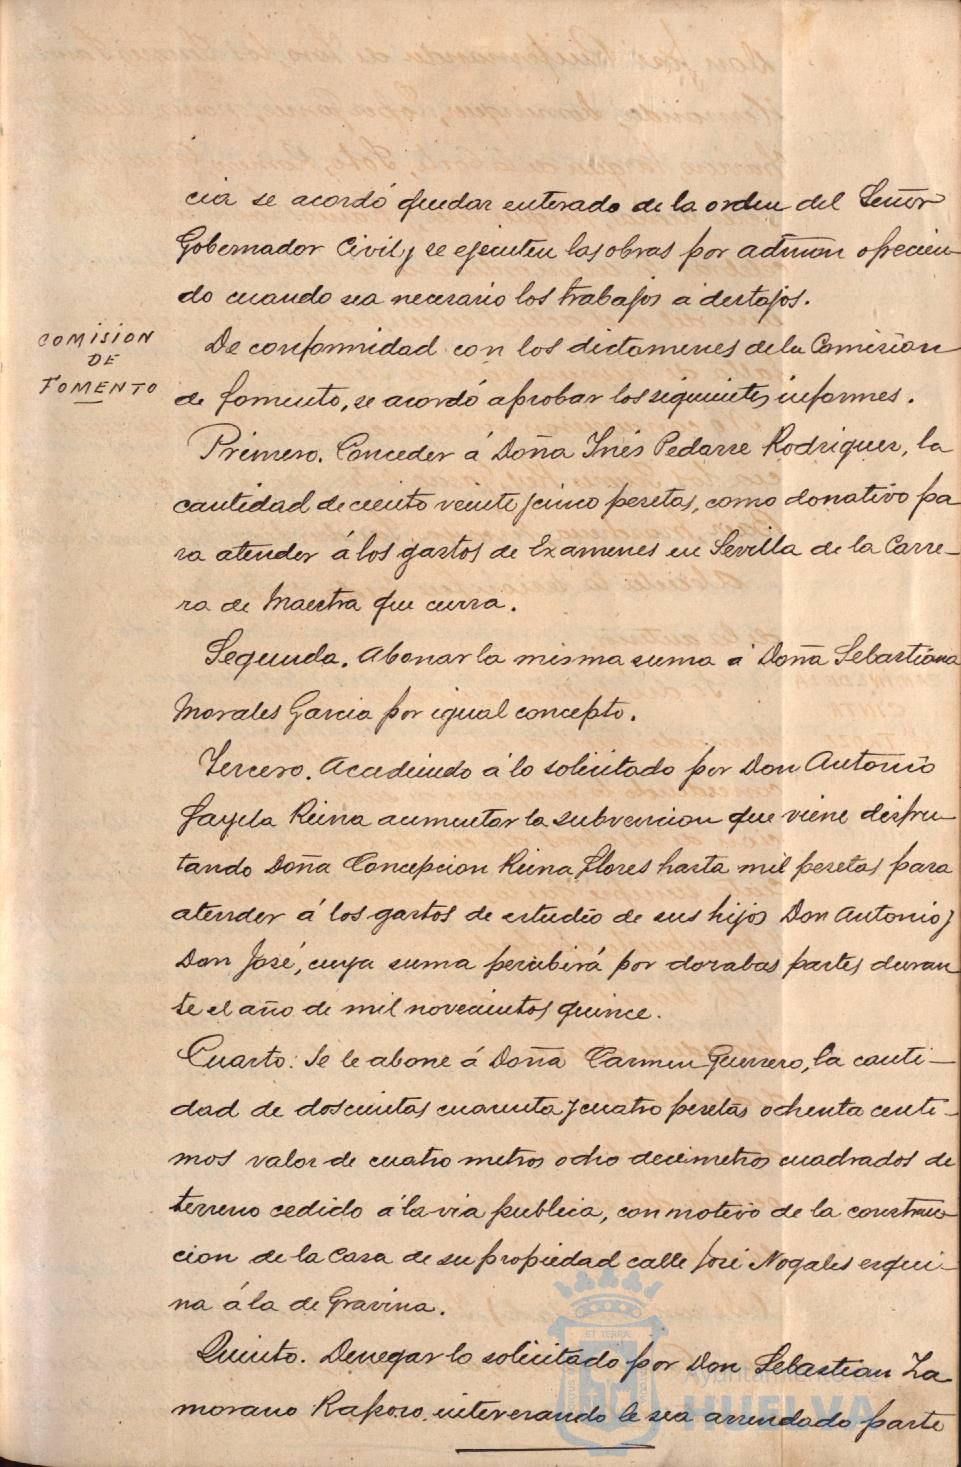 cia se acordó quedar enterado de la orden del Señor
Gobernador Civil y se ejecuten las obras por admón ofrecien-
do cuando sea necesario los trabajos á destajos.
COMISION
DE
FOMENTO
De conformidad con los dictamenes de la Comision
de fomento, se acordó aprobar los siguientes informes.
Primero. Conceder á Doña Inés Pedarre Rodriguez, la
cantidad de ciento veinte y cinco pesetas, como donativo pa
ra atender á los gastos de Examenes en Sevilla de la Carre-
ra de Maestra que cursa.
Segunda. Abonar la misma suma á Doña Sebastiana
Morales Garcia por igual concepto.
Tercero. Accediendo á lo solicitado por Don Antonio
Gayela Reina aumentar la subvencion que viene disfru
tando Doña Concepcion Reina Flores hasta mil pesetas para
atender á los gastos de estudio de sus hijos Don Antonio y
Don José, cuya suma percibirá por dozabas partes duran
te el año de mil novecientos quince.
Cuarto. Se le abone á Doña Carmen Guerrero, la canti-
dad de doscientas cuarenta y cuatro pesetas ochenta centi-
mos valor de cuatro metros ocho decimetros cuadrados de
terreno cedido á la via publica, con motivo de la construc
cion de la casa de su propiedad calle José Nogales esqui-
na á la de Gravina.
Quinto. Denegar lo solicitado por Don Sebastian Za
morano Raposo interesando le sea arrendado parte
ET TERRA
Ayuntamiento de
HUELVA